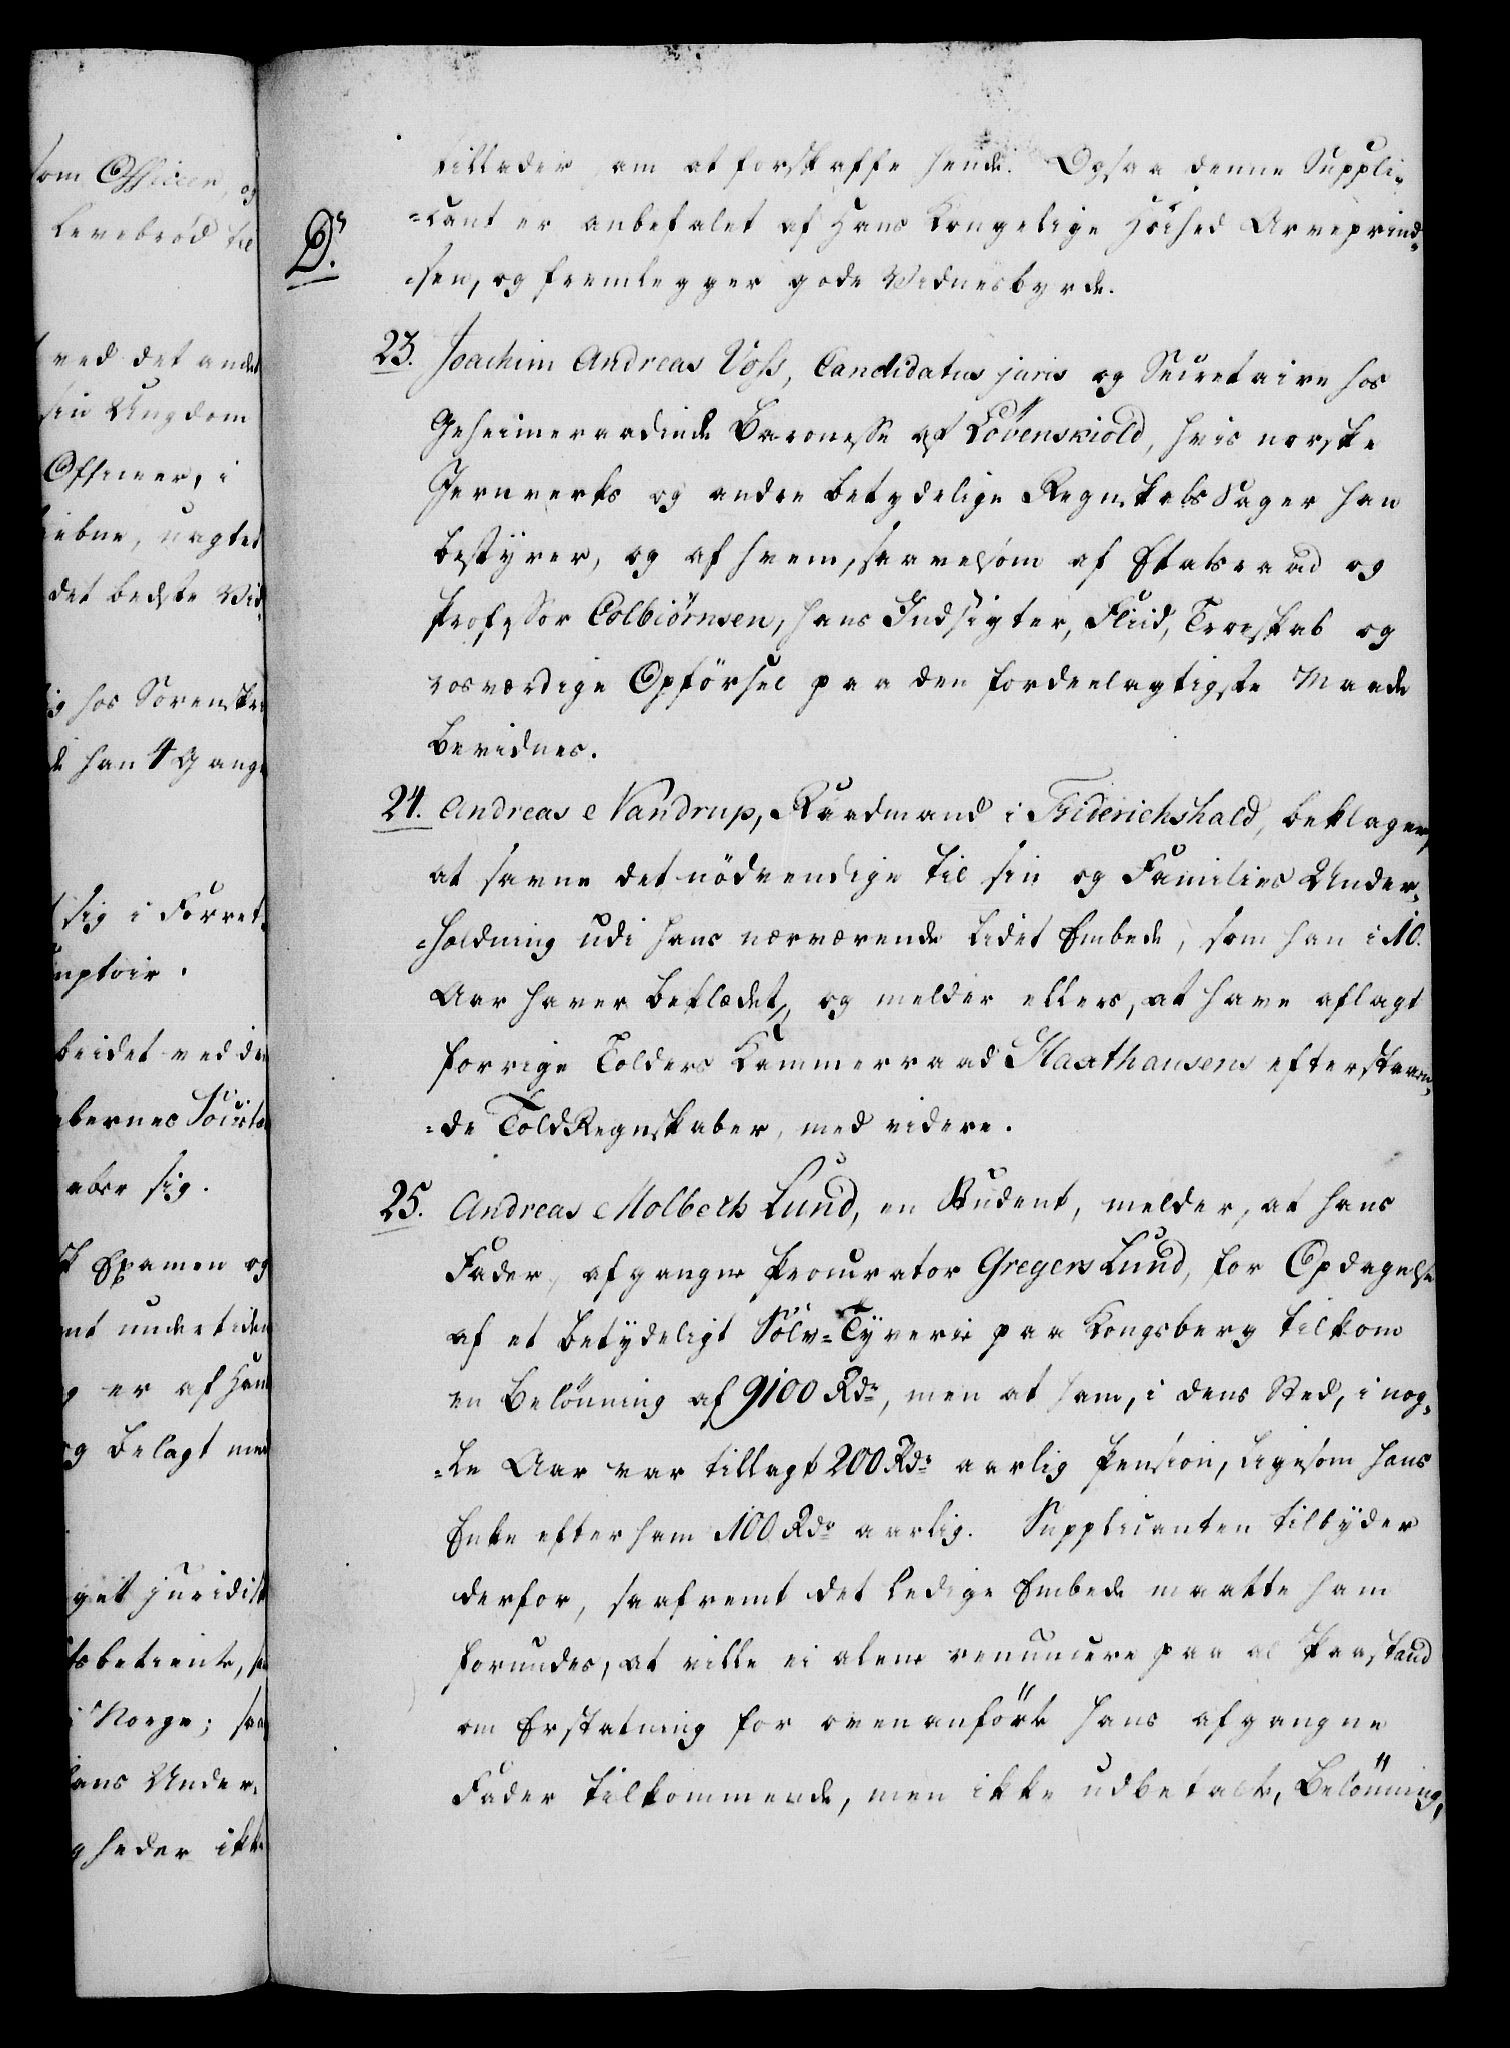 som Officeer, og
Levebrød til
ved det andet
sin Ungdom
Officeer, i
uagtet
det bedste Vid¬
hos Sorenskr
han 4 Gange
sig i Forret¬
mptoir.
beidet ved de
sig.
Examen og
undertiden
er af Hans
og belagt med
juridisk
Norge; saa
Under¬
gheder ikke
D.
tillader ham at forskaffe hende. Ogsaa denne Suppli¬
=cant er anbefalet af Hans Kongelige Höihed Arveprind¬
sen, og fremlegger gode Vidnesbyrde.
23. Joachim Andreas Voss, Candidatus juris og Secretaire hos
Geheimeraadinde Baronesse af Lövenskiold, hvis norske
Jernverks og andre betydelige Regnskabs Sager han
bestyrer, og af hvem, saavelsom af Etatsraad og
Professor Colbiörnsen, hans Indsigter, Fliid, Troeskab og
rosværdige Opförsel paa den fordeelagtigste Maade
bevidnes.
24. Andreas Nandrup, Raadmand i Friderichshald, beklager,
at savne det nödvendige til sin og Families Under¬
=holdning udi hans nærværende lidet Embede, som han i 10.
Aar haver beklædet, og melder ellers, at have aflagt
forrige Tolders Kammerraad Haxthausens efterstaaen¬
=de Told Regnskaber, med videre.
25. Andreas Molbech Lund, en Student, melder, at hans
Fader, afgangne Procurator Gregers Lund, for Opdagelse
af et betydeligt Sölv=Tyverie paa Kongsberg tilkom
en Belönning af 9100 Rdr, men at ham, i dens Sted, i nog¬
=le Aar var tillagt 200 Rdr aarlig Pension, ligesom hans
Enke efter ham 100 Rdr aarlig. Supplicanten tilbyder
derfor, saafremt det ledige Embede maatte ham
forundes, at ville ei alene renuncere paa al Paastand
om Erstatning for ovenanförte hans afgangne
Fader tilkommende, men ikke udbetalte, Belönning,